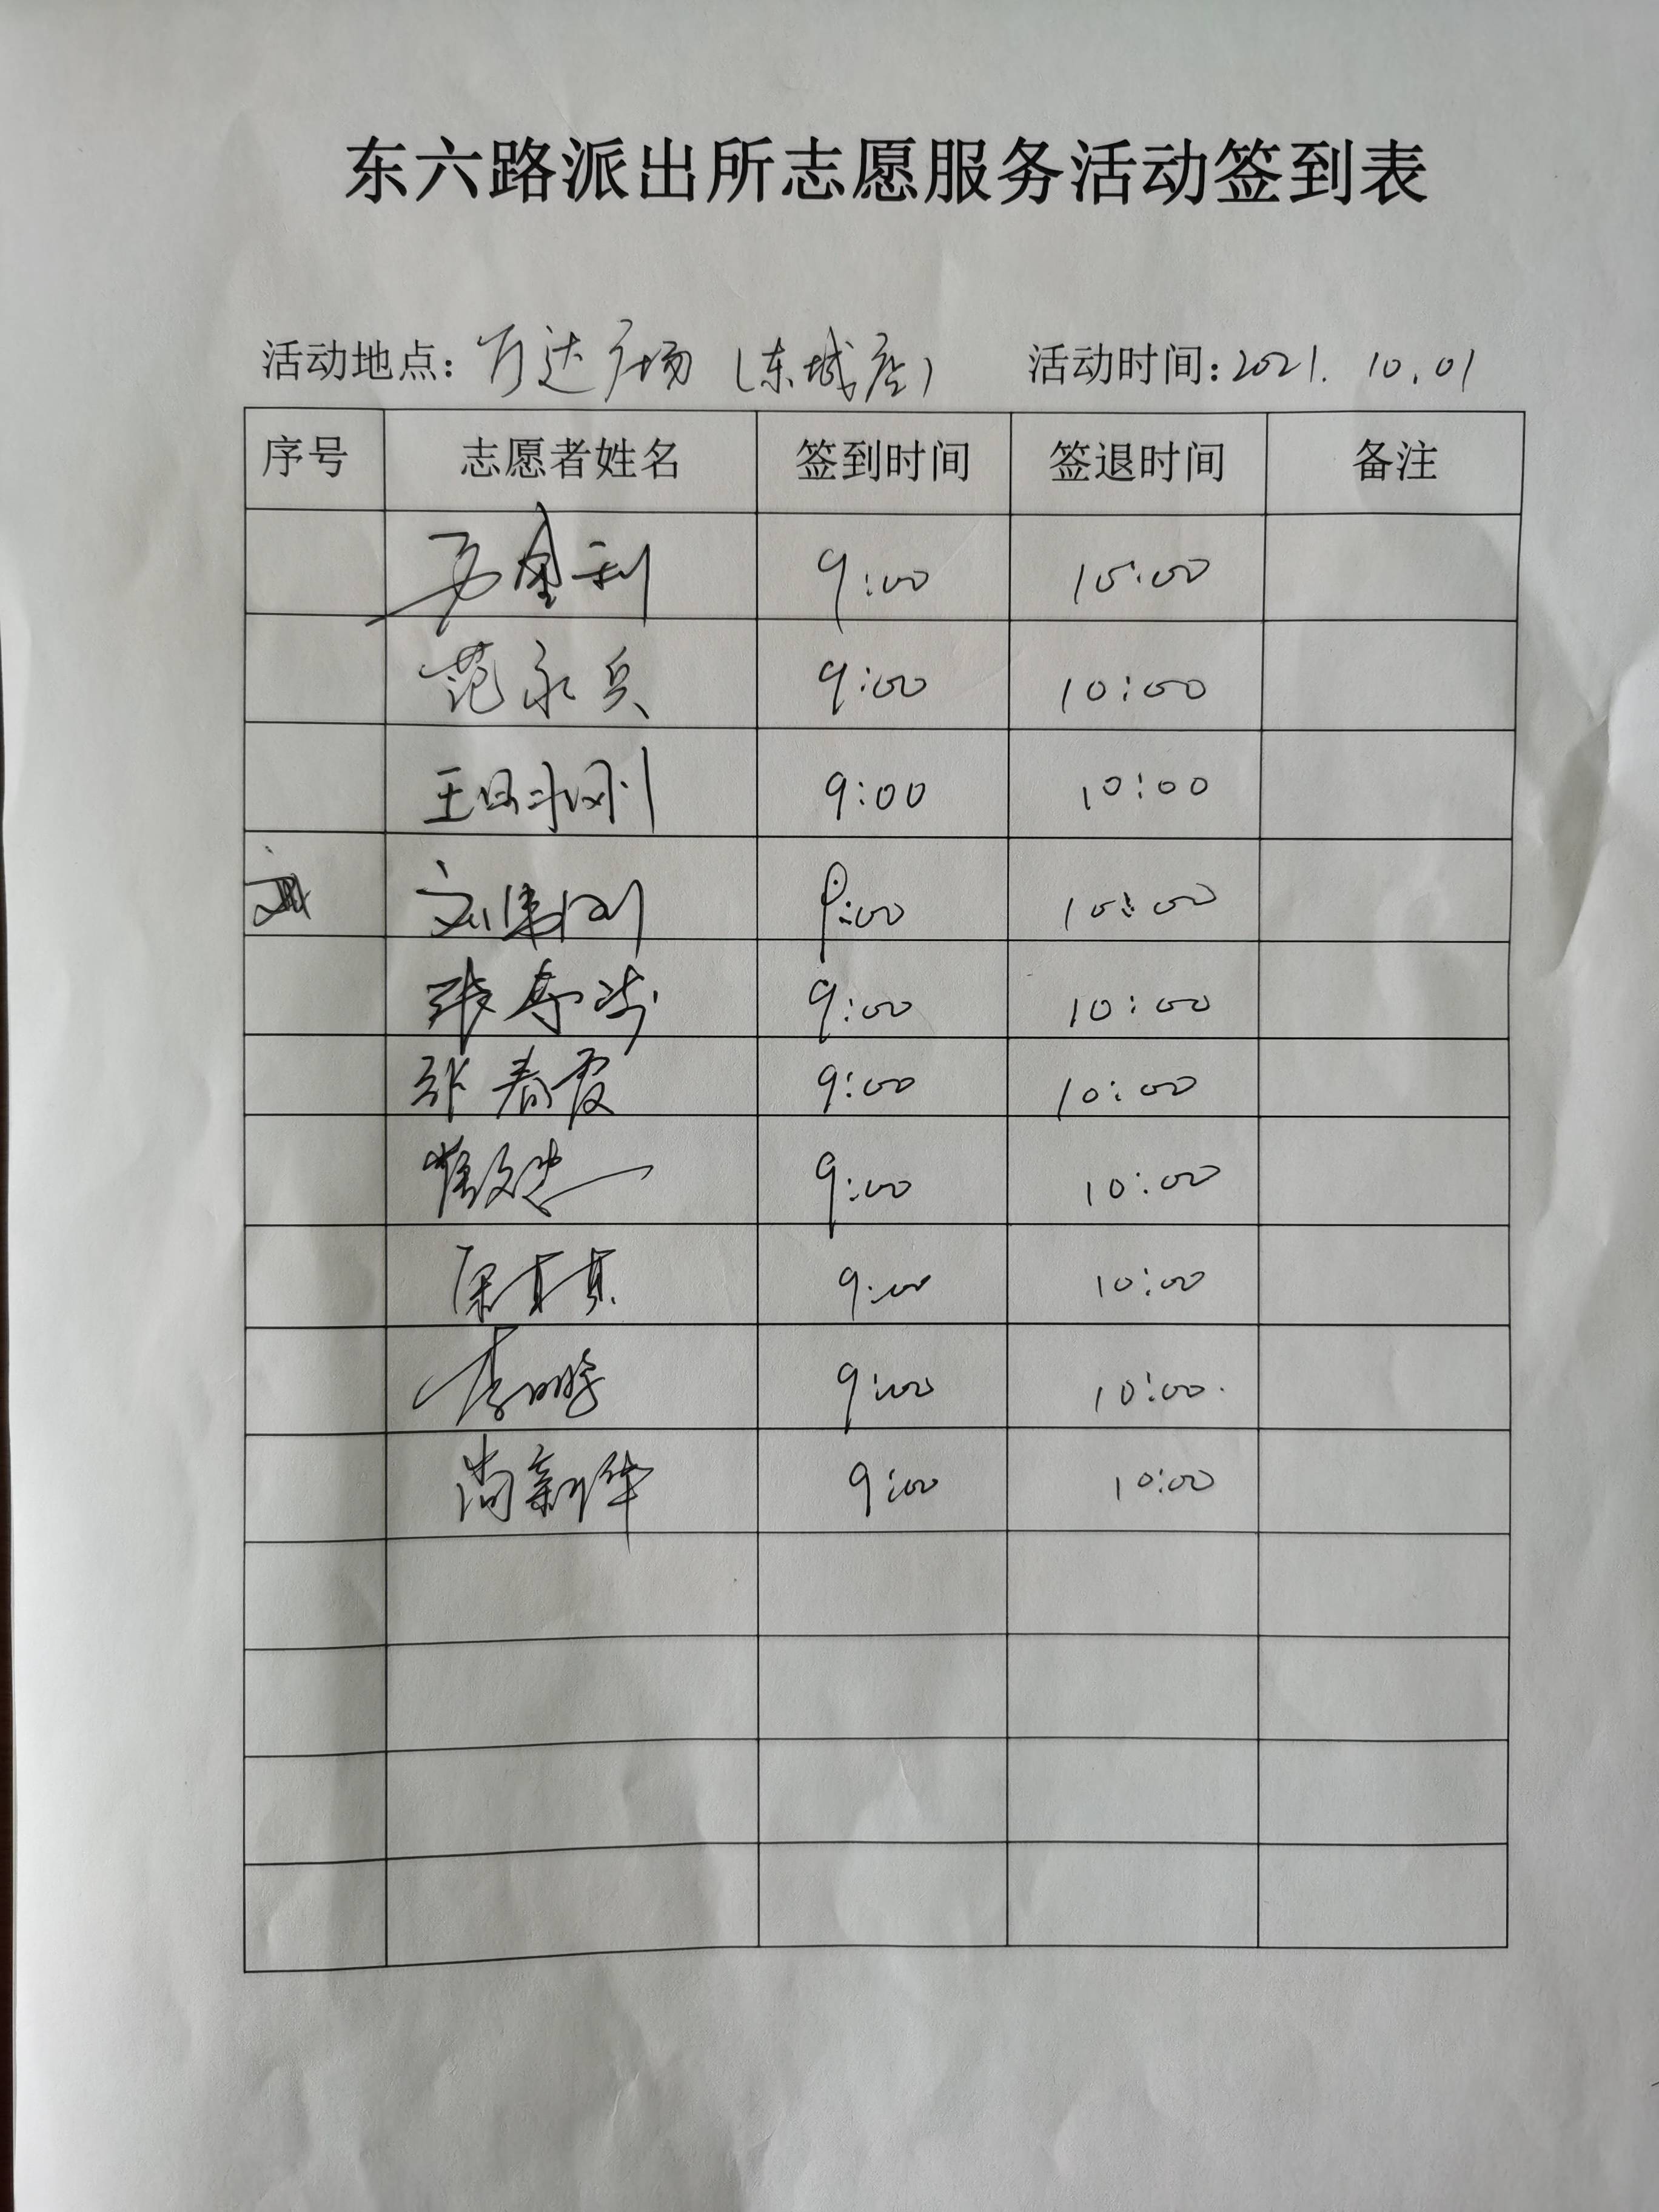 东六路派出所志愿服务活动签到表
活动地点：万达广场（东城店） 活动时间：2021.10.01
序号 志愿者姓名 签到时间 签退时间 备注
9:00 10:00
范永兵 9:00 10:00
9:00 10:00
9:00 10:00
9:00 10:00
张春霞 9:00 10:00
9:00 10:00
9:00 10:00
李鹏 9:00 10:00.
尚新华 9:00 10:00